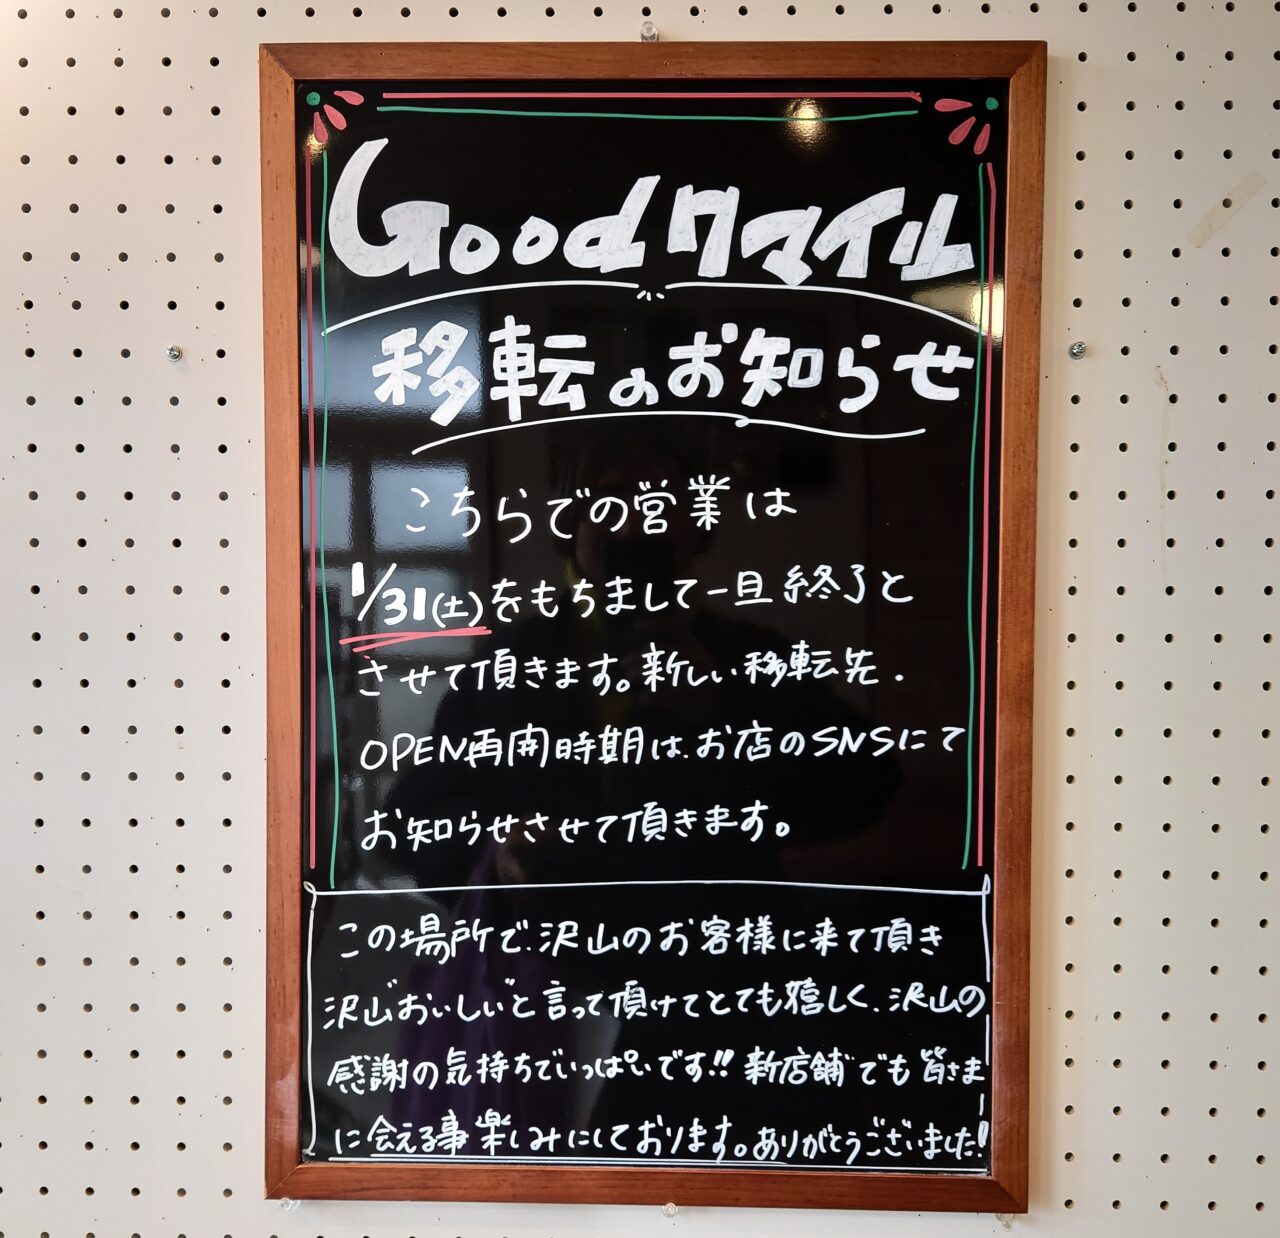 Goodスマイル
移転のお知らせ
こちらでの営業は
1/31(土)をもちまして一旦終了と
させて頂きます。新しい移転先.
OPEN再開時期は、お店のSNSにて
お知らせさせて頂きます。
この場所で、沢山のお客様に来て頂き
沢山"おいしい"と言って頂けてとても嬉しく、沢山の
感謝の気持ちでいっぱいです!! 新店舗でも皆さま
に会える事楽しみにしております。ありがとうございました!!